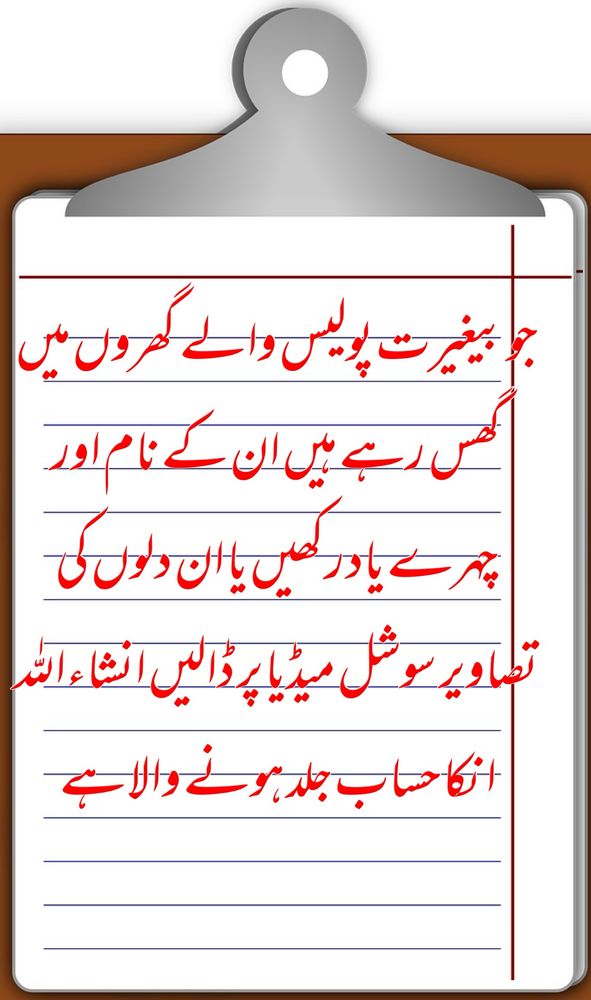 جو بیغیرت پولیس والے گھروں میں
گھس رہے ہیں ان کے نام اور
چہرے یادرکھیں یا ان دلوں کی
تصاویر سوشل میڈیا پر ڈالیں انشاء اللہ
انکا حساب جلد ہونے والا ہے